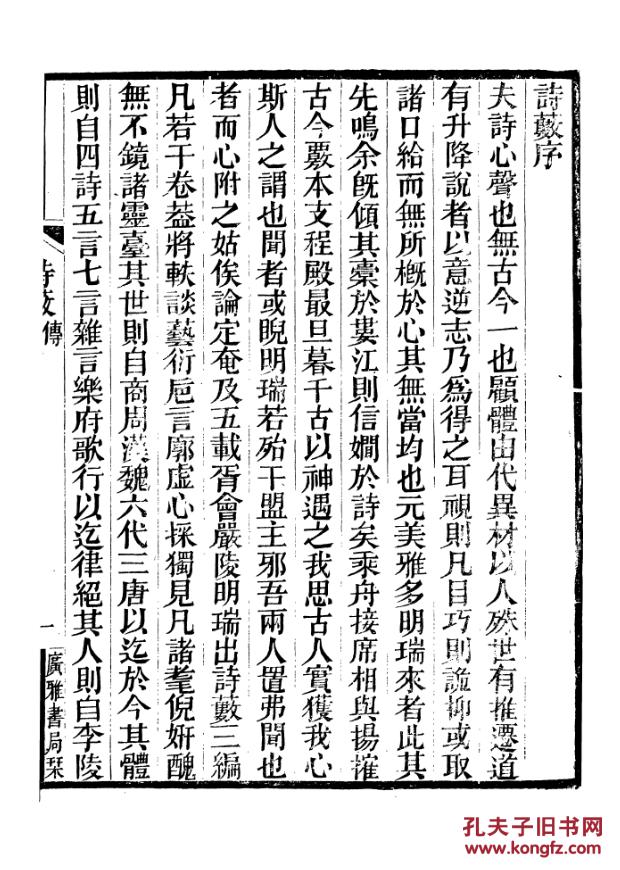 詩藪序
夫詩心聲也無古今一也顧體由代異材以人殊世有推遷道
有升降說者以意逆志乃爲得之耳視則凡目巧則詭抑或取
諸口給而無所槪於心其無當均也元美雅多明瑞來者此其
先鳴余旣傾其橐於婁江則信嫺於詩矣乘舟接席相與揚搉
古今覈本支程殿最旦暮千古以神遇之我思古人實獲我心
斯人之謂也聞者或睨明瑞若殆干盟主邪吾兩人置弗聞也
者而心附之姑俟論定奄及五載胥會嚴陵明瑞出詩藪三編
凡若干卷葢將軼談藝衍巵言廓虛心採獨見凡諸耄倪姸醜
無不鏡諸靈臺其世則自商周漢魏六代三唐以迄於今其體
則自四詩五言七言雜言樂府歌行以迄律絕其人則自李陵
詩藪傳
一
廣雅書局栞
孔夫子旧书网
www.kongfz.com